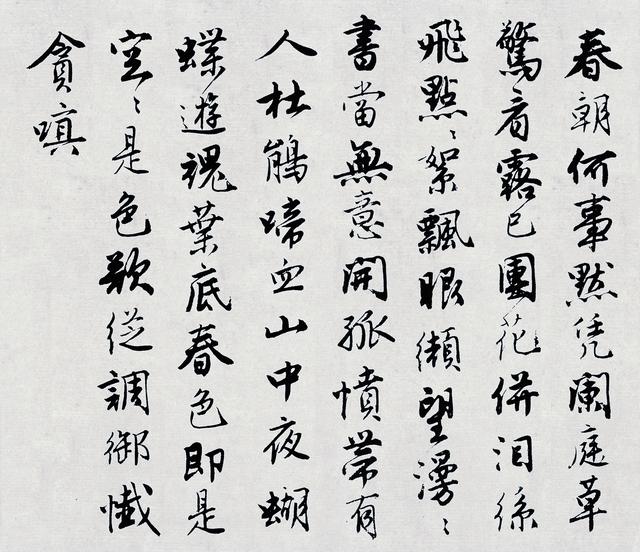 春朝何事默凭闌庭草
驚看露已團花併泪絲
飛點〻絮飄眼纈望漫〻
書當無意開孤憤帶有
人杜鵑啼血山中夜蝴
蝶遊魂葉底春色即是
空〻是色欲從調御懺
貪嗔